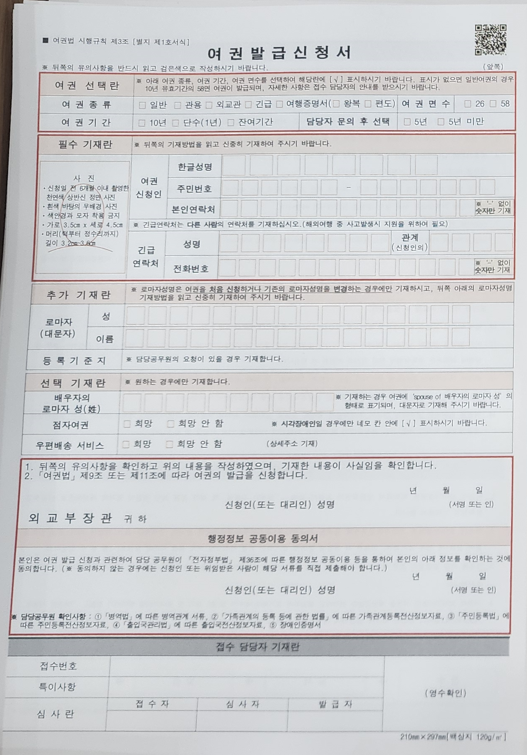 ■ 여권법 시행규칙 제3조 [별지 제1호서식]
여권발급신청서
※ 뒤쪽의 유의사항을 반드시 읽고 검은색으로 작성하시기 바랍니다. (앞쪽)
여권 선택란 ※ 아래 여권 종류, 여권 기간, 여권 면수를 선택하여 해당란에 [√] 표시하시기 바랍니다. 표시가 없으면 일반여권의 경우
10년 유효기간의 58면 여권이 발급되며, 자세한 사항은 접수 담당자의 안내를 받으시기 바랍니다.
여권 종류 □ 일반 □ 관용 □ 외교관 □ 긴급 □ 여행증명서(□ 왕복 □ 편도) 여권 면수 □ 26 □ 58
여권 기간 □ 10년 □ 단수(1년) □ 잔여기간 담당자 문의 후 선택 □ 5년 □ 5년 미만
필수 기재란 ※ 뒤쪽의 기재방법을 읽고 신중히 기재하여 주시기 바랍니다.
사 진
• 신청일 전 6개월 이내 촬영한
천연색 상반신 정면 사진
• 흰색 바탕의 무배경 사진
• 색안경과 모자 착용 금지
• 가로 3.5cm x 세로 4.5cm
• 머리(턱부터 정수리까지)
길이 3.2cm-3.6cm
여권
신청인
한글성명
주민번호 –
본인연락처 ※ '-' 없이
숫자만 기재
※ 긴급연락처는 다른 사람의 연락처를 기재하십시오. (해외여행 중 사고발생시 지원을 위하여 필요)
긴급
연락처
성명 관계
(신청인의)
전화번호 ※ '-' 없이
숫자만 기재
추가 기재란 ※ 로마자성명은 여권을 처음 신청하거나 기존의 로마자성명을 변경하는 경우에만 기재하시고, 뒤쪽 아래의 로마자성명
기재방법을 읽고 신중히 기재하여 주시기 바랍니다.
로마자
(대문자)
성
이름
등록기준지 ※ 담당공무원의 요청이 있을 경우 기재합니다.
선택 기재란 ※ 원하는 경우에만 기재합니다.
배우자의
로마자 성(姓)
※ 기재하는 경우 여권에 'spouse of 배우자의 로마자 성' 의
형태로 표기되며, 대문자로 기재해 주시기 바랍니다.
점자여권 □ 희망 □ 희망 안 함 ※ 시각장애인일 경우에만 네모 칸 안에 [√] 표시하시기 바랍니다.
우편배송 서비스 □ 희망 □ 희망 안 함 (상세주소 기재)
1. 뒤쪽의 유의사항을 확인하고 위의 내용을 작성하였으며, 기재한 내용이 사실임을 확인합니다.
2. 「여권법」 제9조 또는 제11조에 따라 여권의 발급을 신청합니다.
년 월 일
신청인(또는 대리인) 성명 (서명 또는 인)
외교부장관 귀하
행정정보 공동이용 동의서
본인은 여권 발급 신청과 관련하여 담당 공무원이 「전자정부법」 제36조에 따른 행정정보 공동이용 등을 통하여 본인의 아래 정보를 확인하는 것에
동의합니다. (※ 동의하지 않는 경우에는 신청인 또는 위임받은 사람이 해당 서류를 직접 제출해야 합니다.)
년 월 일
신청인(또는 대리인) 성명 (서명 또는 인)
※ 담당공무원 확인사항 : ①「병역법」에 따른 병역관계 서류, ②「가족관계의 등록 등에 관한 법률」에 따른 가족관계등록전산정보자료, ③「주민등록법」에
따른 주민등록전산정보자료, ④「출입국관리법」에 따른 출입국전산정보자료, ⑤ 장애인증명서
접수 담당자 기재란
접수번호
특이사항
심 사 란 접 수 자 심 사 자 발 급 자
(영수확인)
210㎜×297㎜[백상지 120g/㎡]